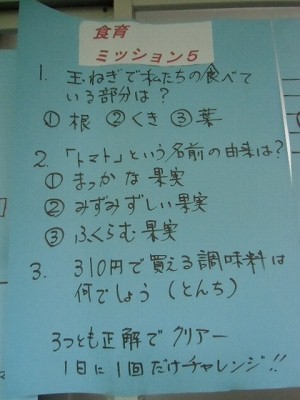 食育
ミッション5
1. 玉ねぎで私たちの食べて
いる部分は？
① 根 ② くき ③ 葉
2. 「トマト」という名前の由来は？
① まっかな果実
② みずみずしい果実
③ ふくらむ果実
3. 310円で買える調味料は
何でしょう（とんち）
3つとも正解でクリアー
1日に1回だけチャレンジ!!